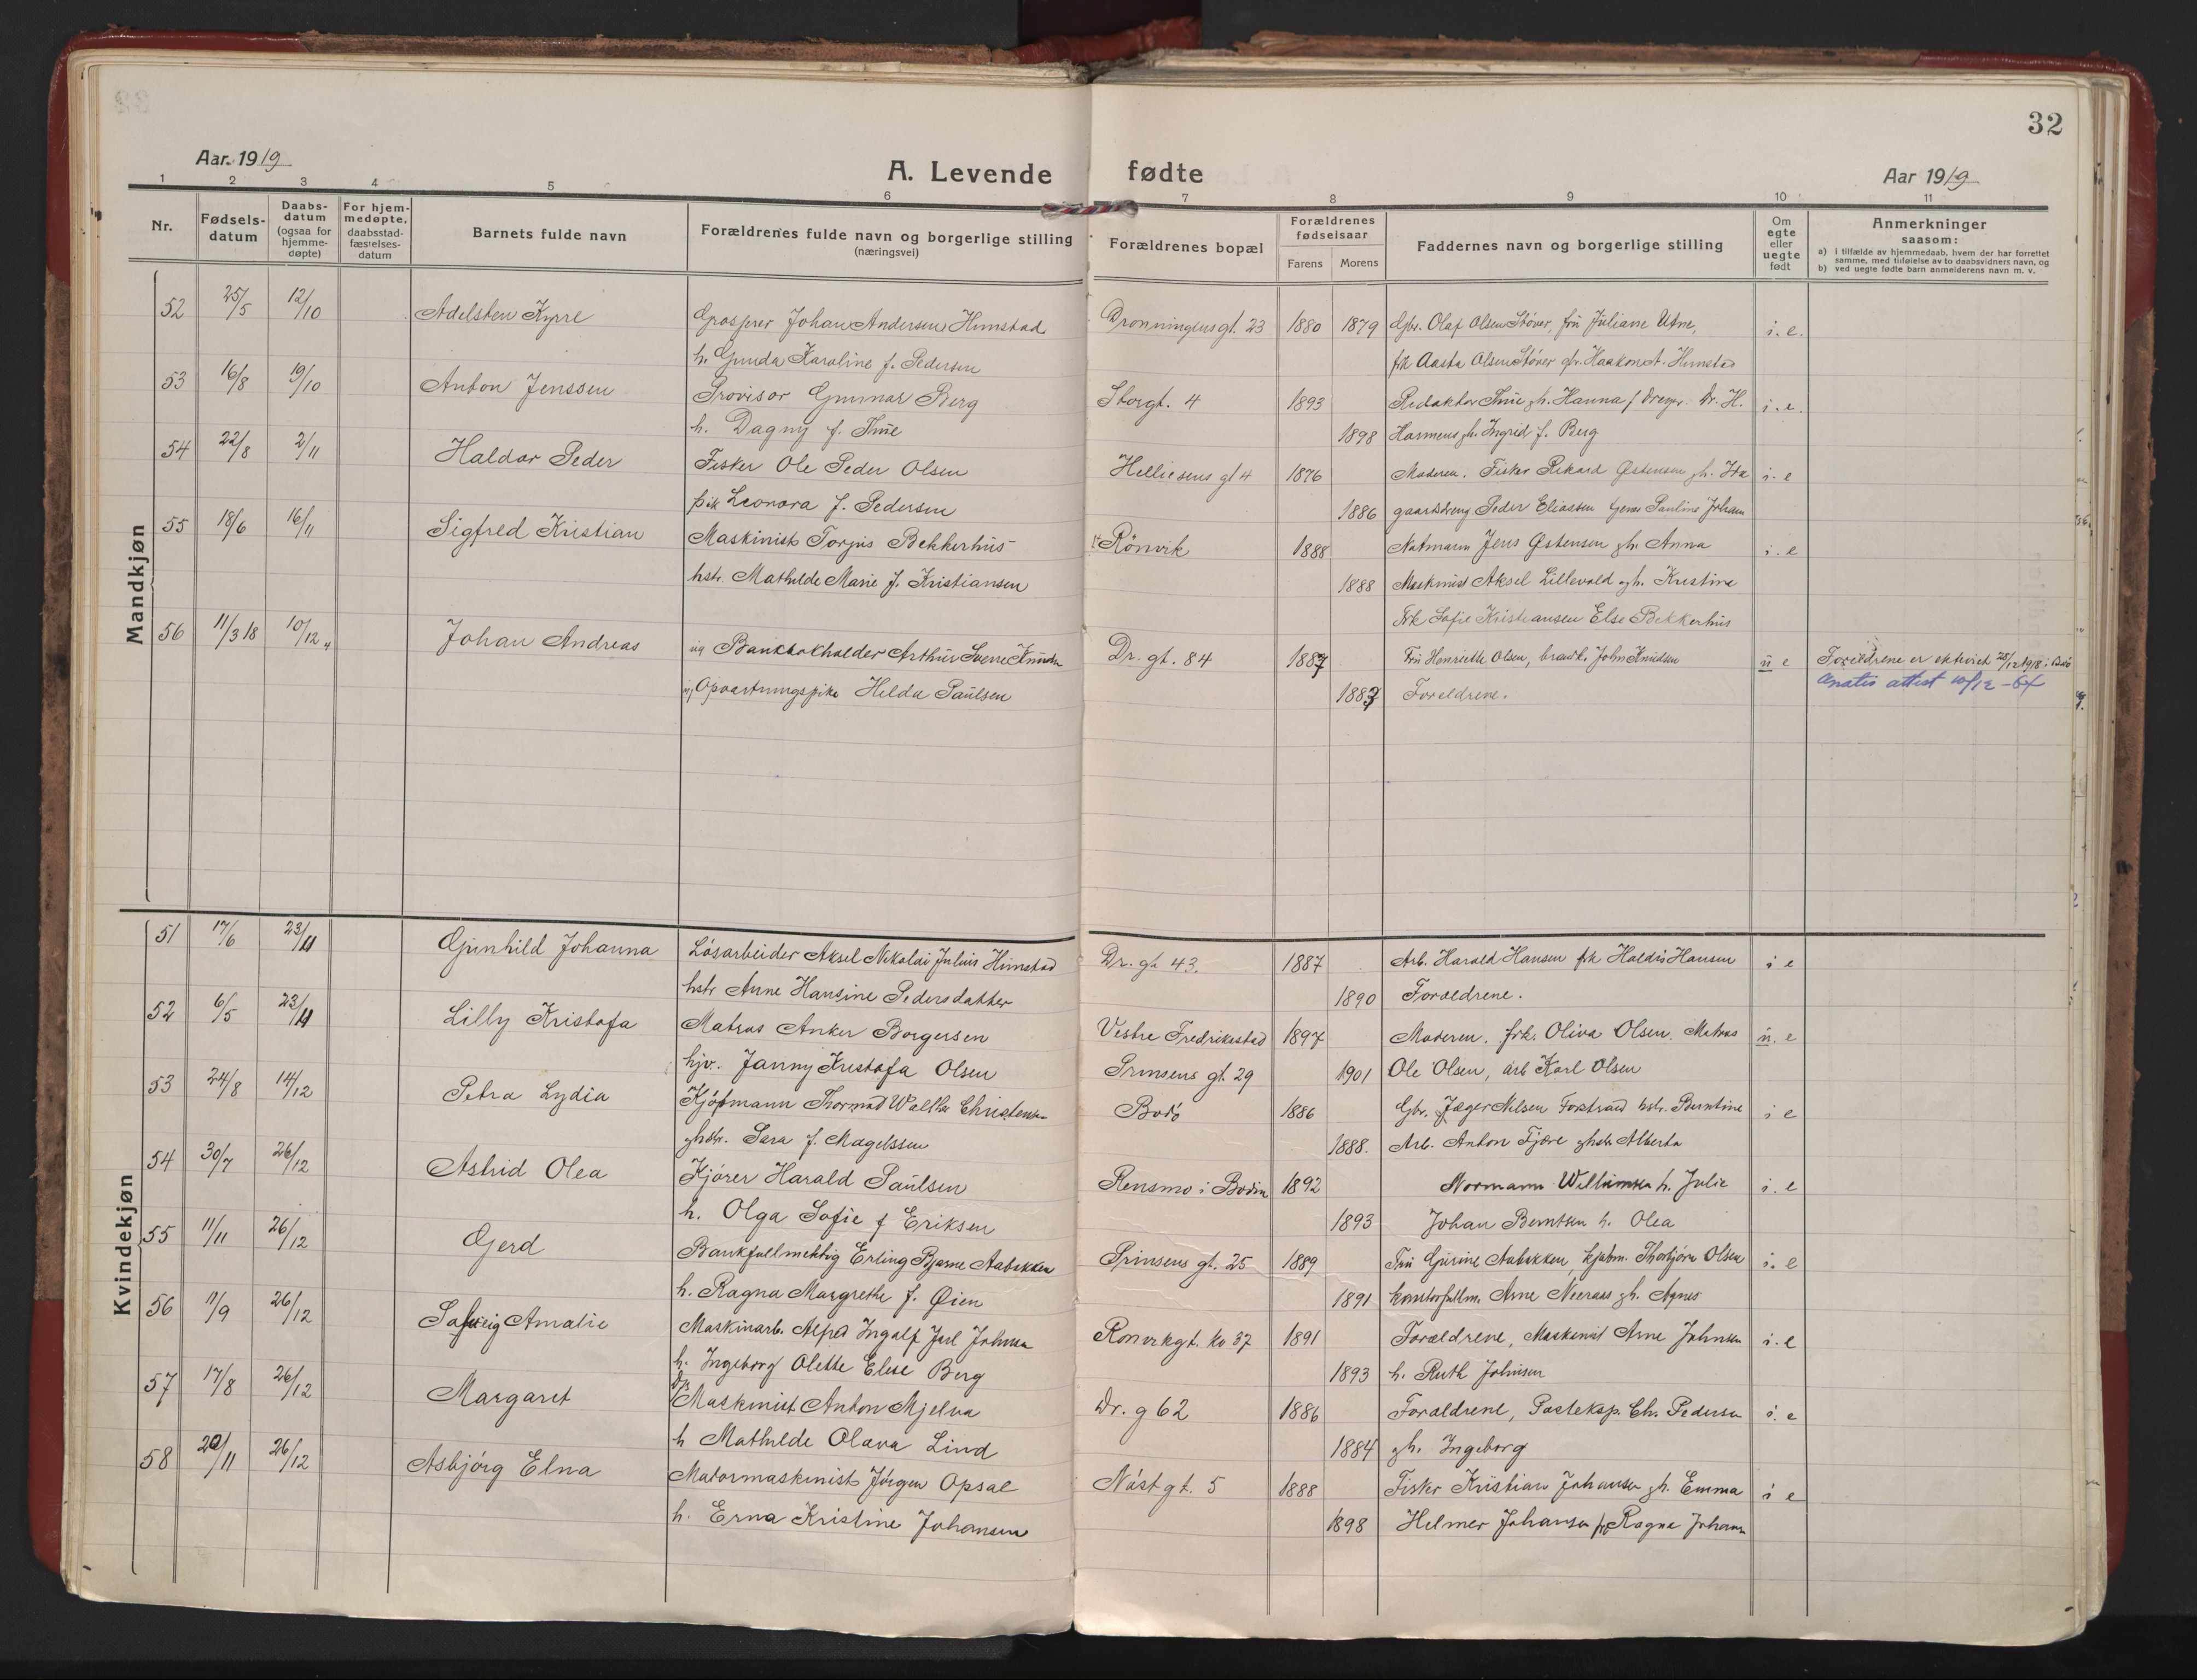 32
Aar. 1919
A. Levende fødte
Aar 1919
1 2 3 4 5 6 7 8 9 10 11
Nr.
Fødsels-
datum
Daabs-
datum
(ogsaa for
hjemme-
døpte)
For hjem-
medøpte.
daabsstad-
fæstelses-
datum
Barnets fulde navn
Forældrenes fulde navn og borgerlige stilling
(næringsvei)
Forældrenes bopæl
Forældrenes
fødselsaar
Farens Morens
Faddernes navn og borgerlige stilling
Om
egte
eller
uegte
født
Anmerkninger
saasom:
a) i tilfælde av hjemmedaab, hvem der har forrettet
samme, med tilføielse av to daabsvidners navn, og
b) ved uegte fødte barn anmelderens navn m. v.
Mandkjøn
52 25/5 12/10 Adelsten Kyrre Grosserer Johan Andersen Himstad Dronningensgt. 23 1880 1879 Gbr. Olaf Olsen Støver, fru Juliane Utne, i. e.
h. Gunda Karoline f. Pedersen frk Aasta Olsen Støver gbr. Haakon A. Himstad
53 16/8 19/10 Anton Jenssen Provisor Gunnar Berg Storgt. 4 1893 Redaktør Thue gh. Hanna f Dreyer. Dr. H. i. e.
h. Dagny f. Thue 1898 Harmens gh. Ingrid f. Berg
54 22/8 2/11 Haldor Peder Fisker Ole Peder Olsen Helliesens gt 4 1876 Moderen. Fisker Rikard Østensen gh. Ida i. e
Leonora f. Pedersen 1886 gaardsdreng Peder Eliassen Pauline Johansen
55 18/6 16/11 Sigfred Kristian Maskinist Torjus Bekkerhus Rönvik 1888 Natmann Jens Østensen gh. Anna i. e
hstr. Mathilde Marie f. Kristiansen 1888 Maskinist Aksel Lillevold gh. Kristine
Frk Sofie Kristiansen Else Bekkerhus
56 11/3 18 10/12 Johan Andreas ug Bankbokholder Arthur Sverre Knudsen Dr. gt. 84 1887 Fru Henriette Olsen, John Knudsen u e Foreldrene er ektevict 28/12 1918 i Bodö
Opvartningspike Hilda Paulsen 1887 Foreldrene. Gratis attest 10/12 -64
Kvindekjøn
51 17/6 23/11 Gunhild Johanna Løsarbeider Aksel Nikolai Julius Himstad Dr. gt. 43. 1887 Arb. Harald Hansen frk Haldis Hansen i e
hstr Anne Hansine Pedersdatter 1890 Foreldrene.
52 6/5 23/11 Lilly Kristofa Matros Anker Borgersen Vestre Fredrikstad 1897 Moderen. frk. Oliva Olsen. Matros u. e
Janny Kristofa Olsen Prinsens gt. 29 1901 Ole Olsen, arb Karl Olsen
53 24/8 14/12 Petra Lydia Kjøpmann Thormod Walter Christensen Bodö 1886 Gbr. Jæger Nilsen hstr. Berntine i e
ghstr. Sara f. Magelssen 1888. Arb. Anton Fjære ghstr Alberta
54 30/7 26/12 Astrid Olea Kjører Harald Paulsen Rensmo i Bodin 1892 Normann Williumsen h. Julie i. e
h. Olga Sofie f Eriksen 1893 Johan Berntsen h. Olea
55 11/11 26/12 Gerd Bankfullmektig Erling Bjarne Aabakken Prinsens gt. 25 1889 Fru Gurine Aabakken, kjøbm. Thorbjørn Olsen i. e
h. Ragna Margrethe f. Øien 1891 kontorfullm. Arne Neeraas gh. Agnes
56 11/9 26/12 Solveig Amalie Maskinarb. Alfred Ingolf Jarl Johnsen 37 1891 Foreldrene, Maskinist Arne Johnsen i. e
h. Ingeborg Olette Elise Berg 1893 h. Ruth Johnsen
57 17/8 26/12 Margaret Maskinist Anton Mjelva Dr. g 62 1886 Foreldrene, Posteksp. Chr. Pedersen i. e
h Mathilde Olava Lind 1884 gh. Ingeborg
58 20/11 26/12 Asbjórg Elna Motormaskinist Jörgen Opsal Nást gt. 5 1888 Fisker Kristian Johansen gh. Emma i e
h. Erna Kristine Johansen 1898 Helmer Johansen Ragna Johansen